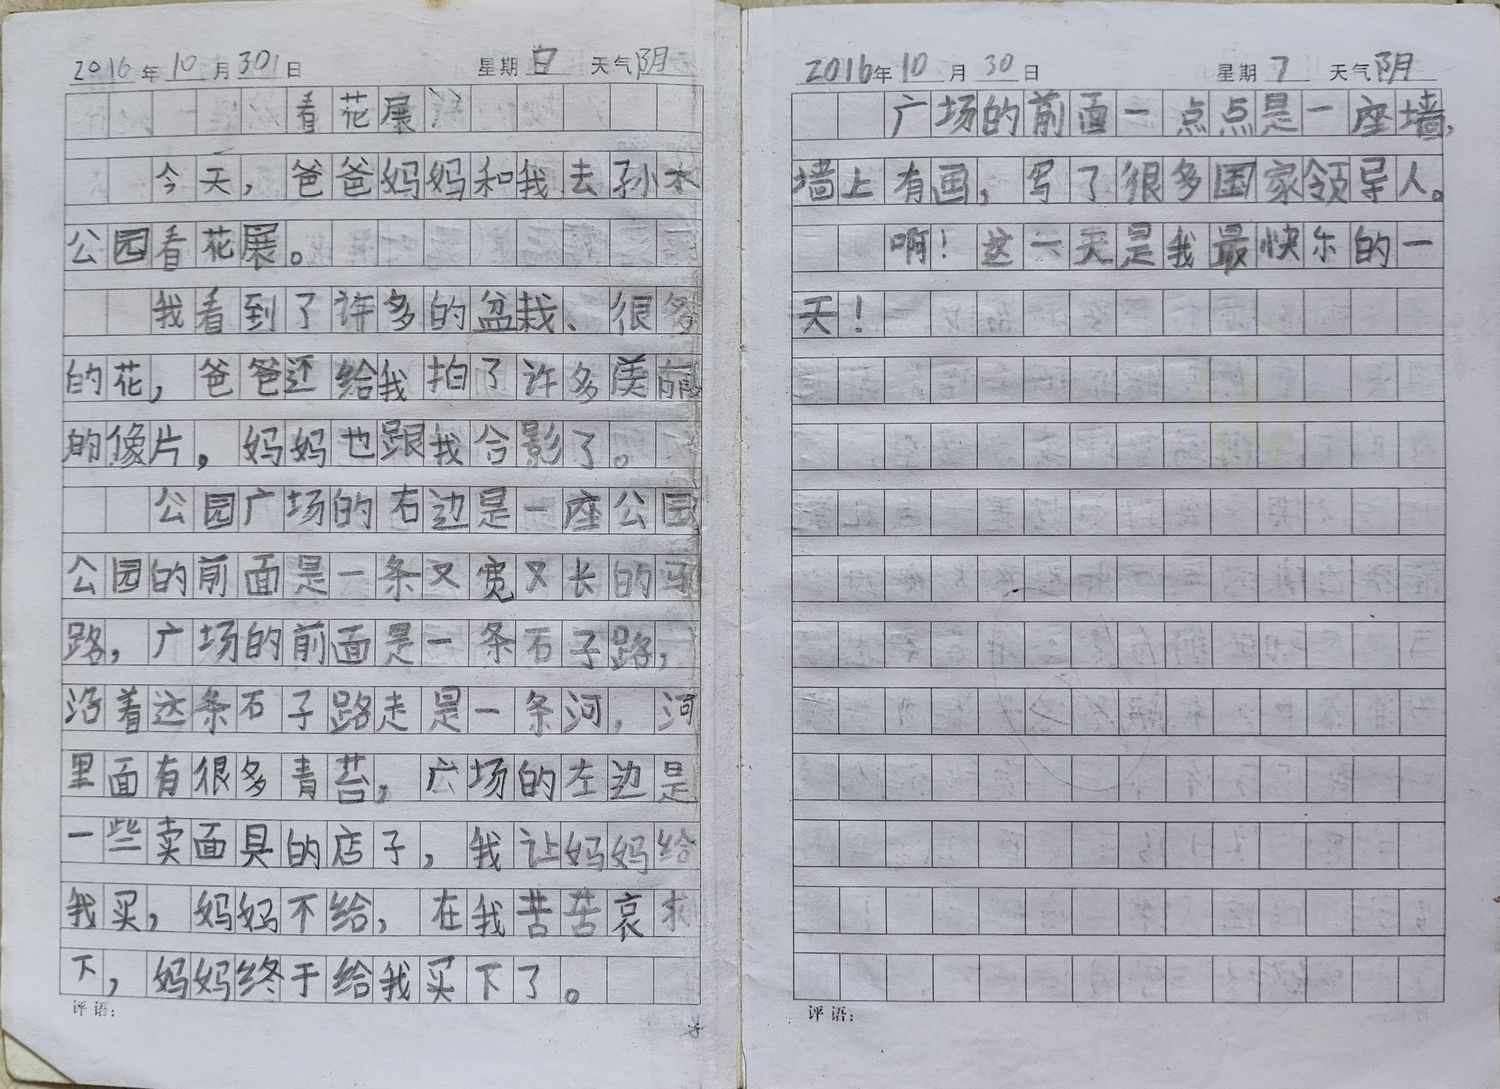 2016年10月30日 星期日 天气阴
看花展
今天，爸爸妈妈和我去孙水
公园看花展。
我看到了许多的盆栽、很多
的花，爸爸还给我拍了许多美丽
的像片，妈妈也跟我合影了。
公园广场的右边是一座公园
公园的前面是一条又宽又长的马
路，广场的前面是一条石子路，
沿着这条石子路走是一条河，河
里面有很多青苔，广场的左边是
一些卖面具的店子，我让妈妈给
我买，妈妈不给，在我苦苦哀求
下，妈妈终于给我买下了。
评语：
2016年10月30日 星期7 天气阴
广场的前面一点点是一座墙，
墙上有画，写了很多国家领导人。
啊！这一天是我最快乐的一
天！
评语：